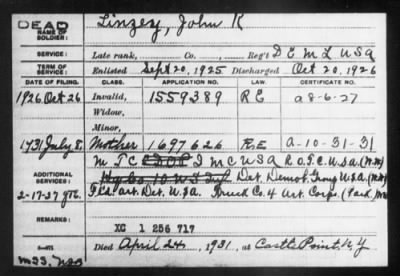 DEAD
NAME OF SOLDIER:
Linzey, John K
SERVICE:
Late rank, Co. Reg't D E M L USA
TERM OF SERVICE:
Enlisted Sept 20, 1925 Discharged Oct 20, 1926
DATE OF FILING. CLASS. APPLICATION NO. LAW. CERTIFICATE NO.
1926 Oct 26 Invalid, 1559389 RE a 8-6-27
Widow,
Minor,
1931 July 8. Mother 1697626 RE a-10-31-31
ADDITIONAL SERVICES:
M T C I M C USA R.O.T.C. U.S.A.
Det. Demob. Group U.S.A.
2-17-37 Art. Det. U.S.A. Truck Co. 4 Art. Corps. (Park,
REMARKS:
XC 1 256 717
Died April 24, 1931, at Castle Point, N.Y